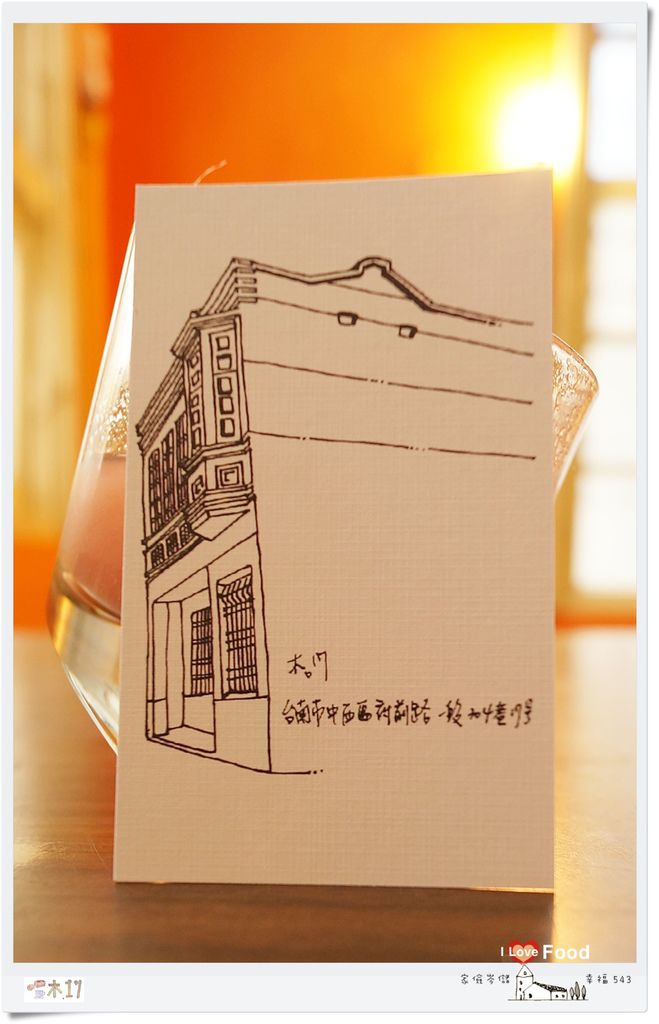 木門
台南市中西區府前路一段74巷17号
I Love Food
家儀岑儒 幸福543
木17